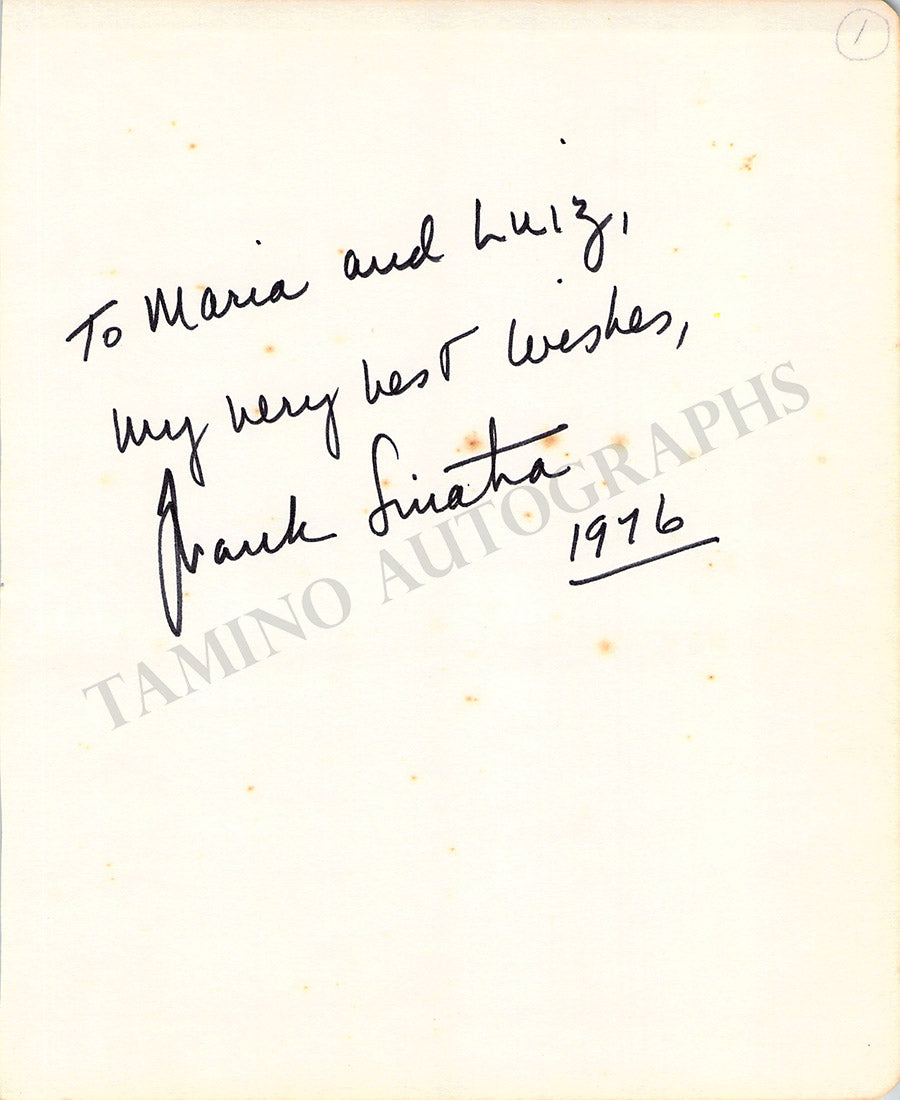 1
To Maria and Luiz,
my very best wishes,
Frank Sinatra
1976
TAMINO AUTOGRAPHS